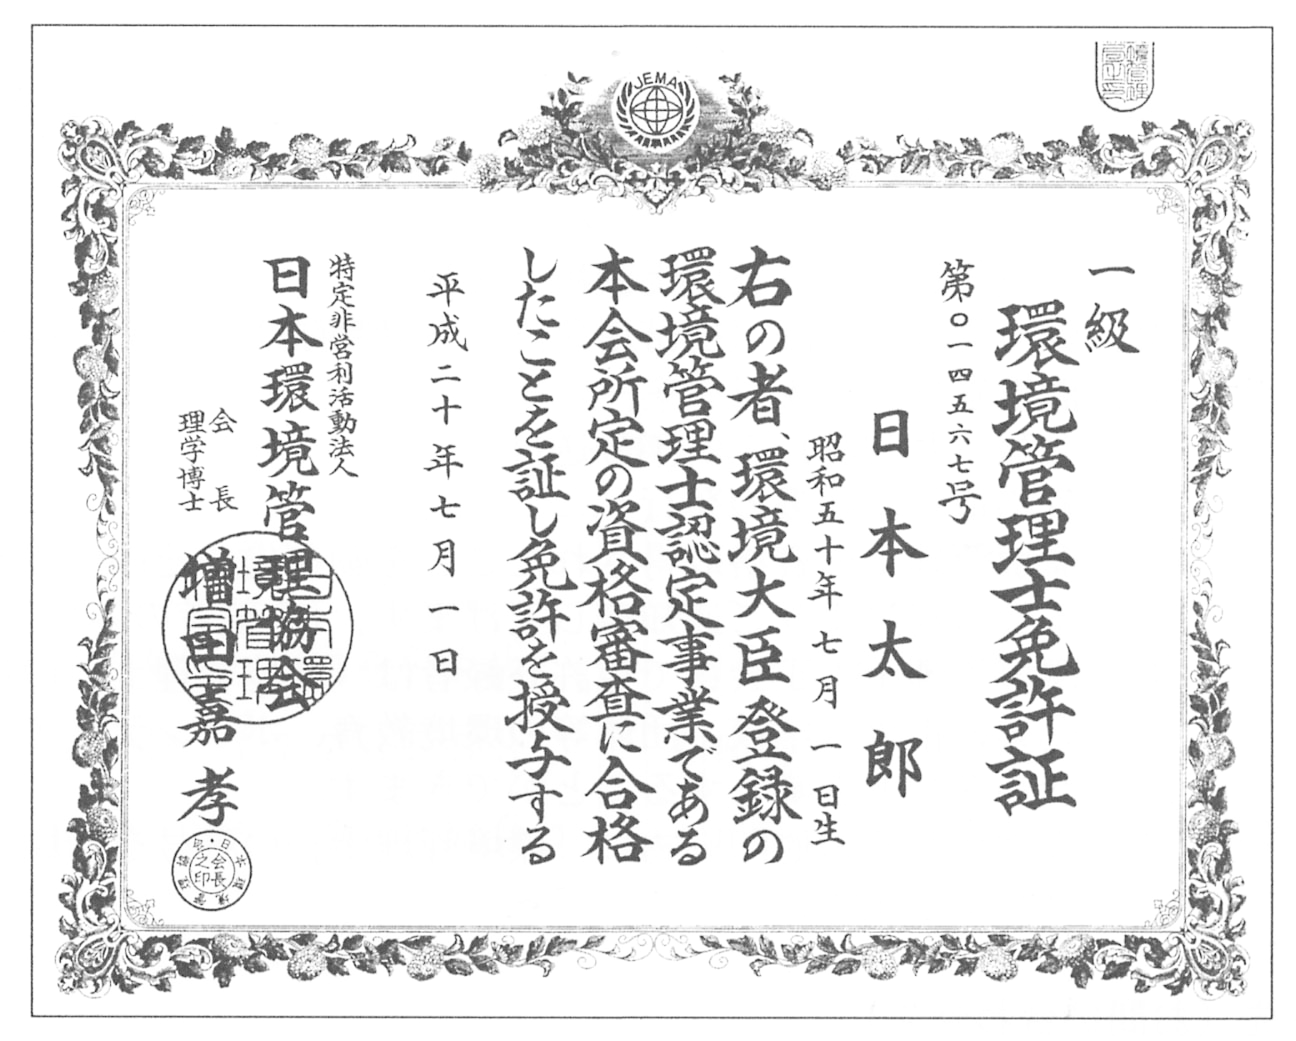 JEMA
一級
環境管理士免許証
第０一四五六七号
日本太郎
昭和五十年七月一日生
右の者、環境大臣登録の
環境管理士認定事業である
本会所定の資格審査に合格
したことを証し免許を授与する
平成二十年七月一日
特定非営利活動法人
日本環境管理協会
会長
理学博士
増田嘉孝
会長之印